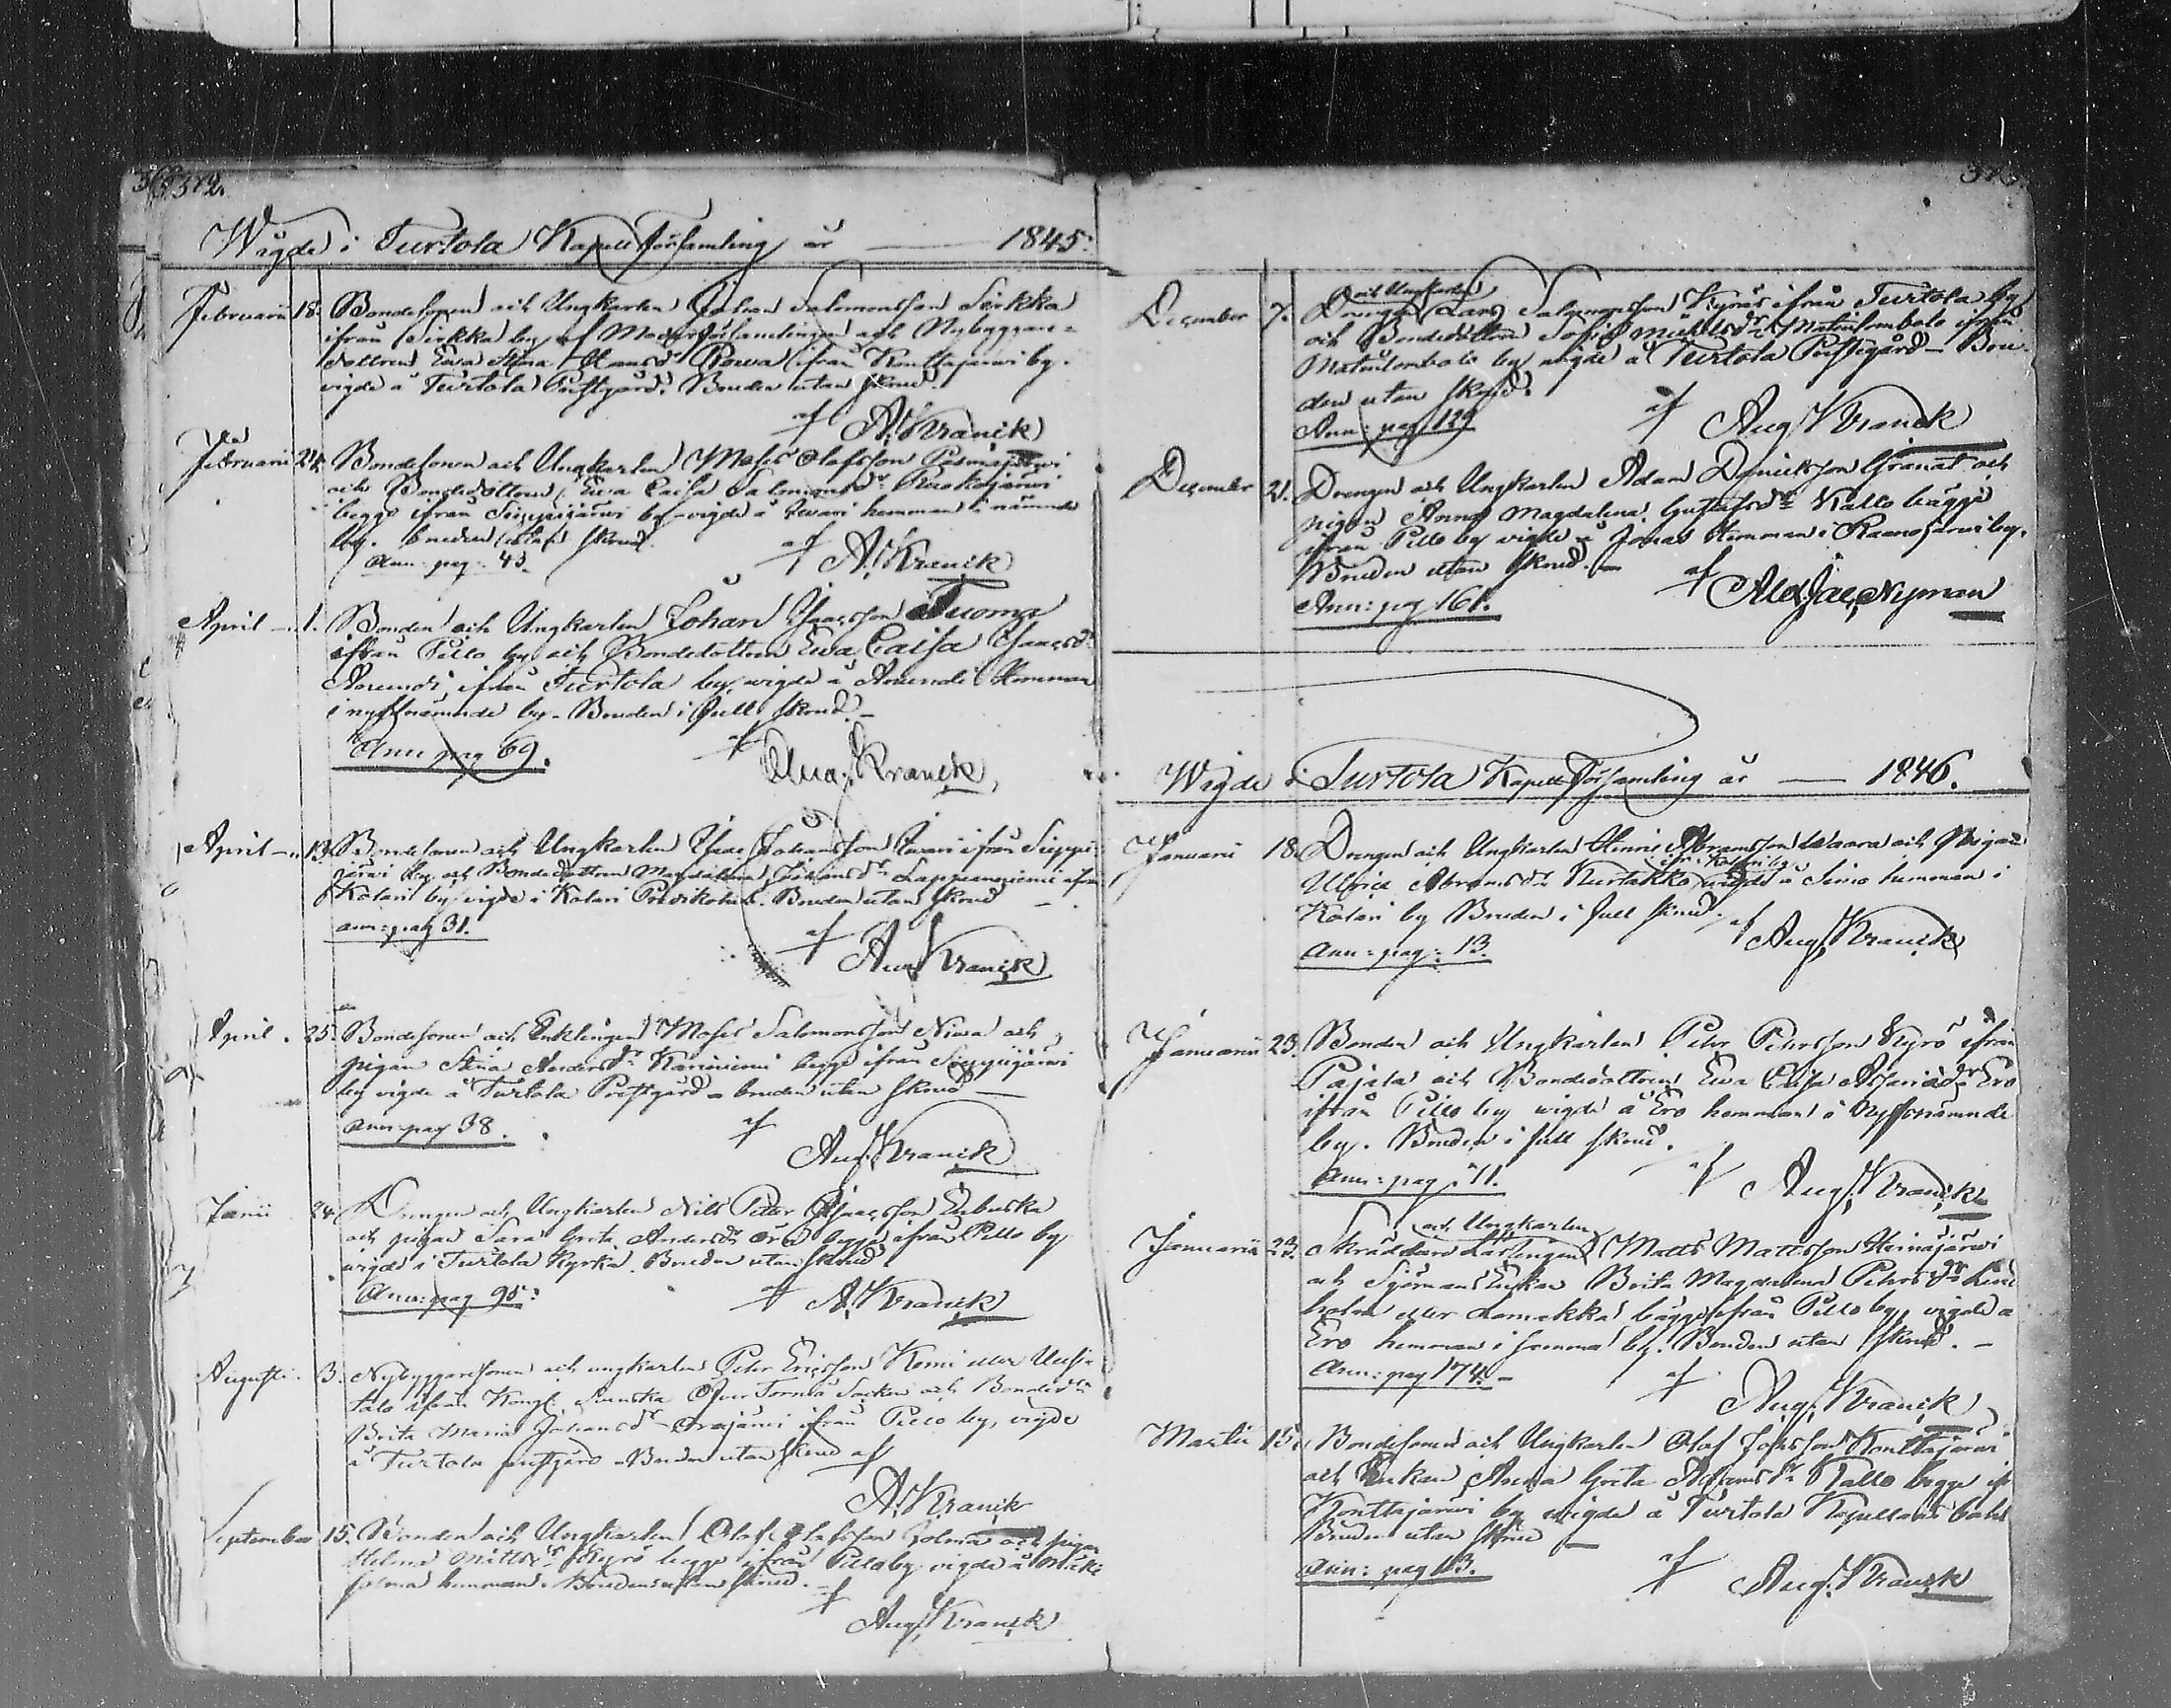 372.
Wigde i Turtola Kapell Församling år — 1845.
Februarii 18. Bondesonen och Ungkarlen Johan Salomonsson Sirkka
ifrån Sirkka by af Moderförsamlingen och Nybyggare-
dottren Ewa Stina Hansdr Rowa ifrån Konttajärwi by.
vigde å Turtola Prestgård. Bruden utan skrud.
af A. Kranck
Februarii 24. Bondesonen och Ungkarlen Moses Olofsson Pasmajärwi
och Bondedottren Ewa Caisa Salomonsdr Ruokojärwi
begge ifrån Sieppijärwi by - vigde å hemman i nämnde
by. bruden utan skrud.
Ann: pag: 43. af A. Kranck
April 1. Bonden och Ungkarlen Johan Isaacsson Tuoma
ifrån Pello by och Bondedottren Ewa Caisa Isaacsdr
ifrån Turtola by, vigde å Hemman
i nyssnämnde by - Bruden i full skrud. -
Ann pag 69. af Aug. Kranck
April 13. Bondesonen och Ungkarlen Isaac Johansson ifrån Sieppi-
järwi by och Bondedottren Magdalena Johansdr Lappeaniemi ifrån
Kolari by vigde i Kolari Bruden utan skrud -
ann: pag 31. af Aug. Kranck
April 25. Bondesonen och Enklingen Moses Salomonsson Niwa och
pigan Stina Andersdr Kaniniemi begge ifrån Sieppijärwi
by vigde å Turtola Prestgård - bruden utan skrud -
ann: pag 38. af Aug. Kranck
Junii 24. Drengen och Ungkarlen Nils Petter Isaacsson
och pigan Sara Greta Andersdr begge ifrån Pello by
vigde i Turtola Kyrka. Bruden utan skrud
Ann: pag 95. af A. Kranck
Augusti 3. Nybyggaresonen och ungkarlen Pehr Ericsson Kemi eller Uusi-
talo ifrån Kongl. Svenska Öfver Torneå Socken och Bondedr
Brita Maria Johansdr Orajärwi ifrån Pello by, vigde
å Turtola prestgård - Bruden utan skrud af
A. Kranck
September 15. Bonden och Ungkarlen Olof Olofsson Jolma och pigan
Helena Kyrö begge ifrån Pello by vigde å
Jolma hemman. Bruden utan skrud.
af Aug. Kranck
373.
December 7. Drengen och Ungkarlen Lars Salomonsson Kyrö ifrån Turtola by
och Bondedottren Sofia Michelsdr Matinlombolo ifrån
Matinlombolo by vigde å Turtola Prestgård - Bru-
den utan skrud.
Ann: pag 129 af Aug. Kranck
December 21. Drengen och Ungkarlen Adam Granat och
pigan Anna Magdalena Gustafsdr Kallo bägge
ifrån Pello by vigde å Jonas Hemman i Raanojärwi by.
Bruden utan skrud. -
Ann: pag 161. af Alex Jac. Nyman
Wigde i Turtola Kapell Församling år — 1846.
Januarii 18. Drengen och Ungkarlen Hinric Abramsson Waara och Pigan
Ulrica Abramsdr Kurtakko ifr: Kolari by vigde å Simo hemman i
Kolari by Bruden i full skrud.
Ann: pag: 13. af Aug. Kranck
Januarii 23. Bonden och Ungkarlen Pehr Pehrsson Kyrö ifrån
Pajala och Bondedottren Ewa Caisa Ero
ifrån Pello by vigde å Ero hemman i nyssnämnde
by. Bruden i full skrud.
Ann: pag: 71. af Aug. Kranck
Januarii 23. Skräddare Lärlingen och Ungkarlen Matts Mattsson Heinäjärwi
och Sjömans Enkan Brita Magdalena Pehrsdr
holm eller Lamakka bägge ifrån Pello by, vigde å
Ero hemman i samma by. Bruden utan skrud. -
Ann: pag 174. - af Aug. Kranck
Martii 15. Bondesonen och Ungkarlen Olof Johsson Konttajärwi
och Enkan Anna Greta Adamsdr Kallo begge ifr
Konttajärwi by vigde å Turtola Kapellans bohl
Bruden utan skrud -
Ann: pag 13. af Aug. Kranck